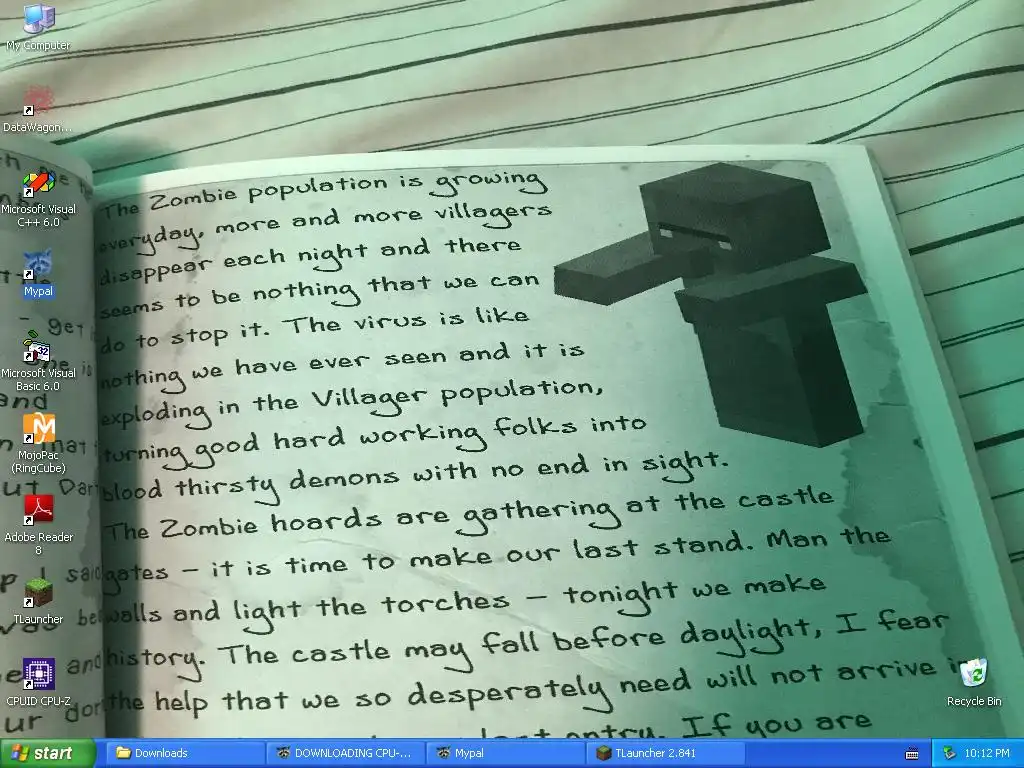 My Computer
DataWagon...
Microsoft Visual
C++ 6.0
Mypal
Microsoft Visual
Basic 6.0
MojoPac
(RingCube)
Adobe Reader
8
TLauncher
CPUID CPU-Z
Recycle Bin
The Zombie population is growing
everyday, more and more villagers
disappear each night and there
seems to be nothing that we can
do to stop it. The virus is like
nothing we have ever seen and it is
exploding in the Villager population,
turning good hard working folks into
blood thirsty demons with no end in sight.
The Zombie hoards are gathering at the castle
gates – it is time to make our last stand. Man the
walls and light the torches – tonight we make
history. The castle may fall before daylight, I fear
the help that we so desperately need will not arrive
entry. If you are
start
Downloads
DOWNLOADING CPU-...
Mypal
TLauncher 2.841
10:12 PM